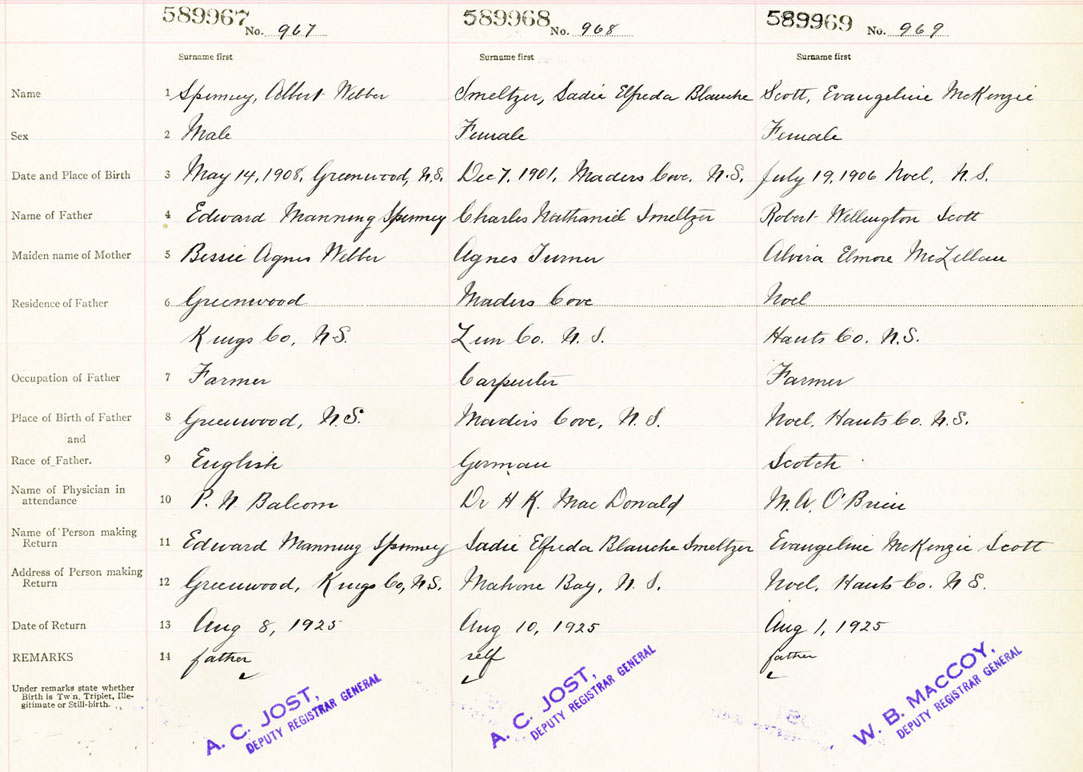 589967 No. 967 589968 No. 968 589969 No. 969
Surname first Surname first Surname first
Name 1 Spinney, Albert Webber Smeltzer, Sadie Elfreda Blanche Scott, Evangeline McKenzie
Sex 2 Male Female Female
Date and Place of Birth 3 May 14, 1908, Greenwood, N.S. Dec 7, 1901, Maders Cove, N.S. July 19, 1906 Noel, N.S.
Name of Father 4 Edward Manning Spinney Charles Nathaniel Smeltzer Robert Wellington Scott
Maiden name of Mother 5 Bessie Agnes Webber Agnes Turner Alvira Elmore McLellan
Residence of Father 6 Greenwood Maders Cove Noel
Kings Co, N.S. Lun Co. N.S. Hants Co. N.S.
Occupation of Father 7 Farmer Carpenter Farmer
Place of Birth of Father 8 Greenwood, N.S. Maders Cove, N.S. Noel, Hants Co. N.S.
and
Race of Father. 9 English German Scotch
Name of Physician in
attendance 10 P. N Balcom Dr H K. MacDonald M.W. O'Brien
Name of Person making
Return 11 Edward Manning Spinney Sadie Elfreda Blanche Smeltzer Evangeline McKenzie Scott
Address of Person making
Return 12 Greenwood, Kings Co, N.S. Mahone Bay, N.S. Noel, Hants Co. N.S.
Date of Return 13 Aug 8, 1925 Aug 10, 1925 Aug 1, 1925
REMARKS 14 father self father
Under remarks state whether
Birth is Twin, Triplet, Ille-
gitimate or Still-birth.
A. C. JOST, A. C. JOST, W. B. MACCOY,
DEPUTY REGISTRAR GENERAL DEPUTY REGISTRAR GENERAL DEPUTY REGISTRAR GENERAL